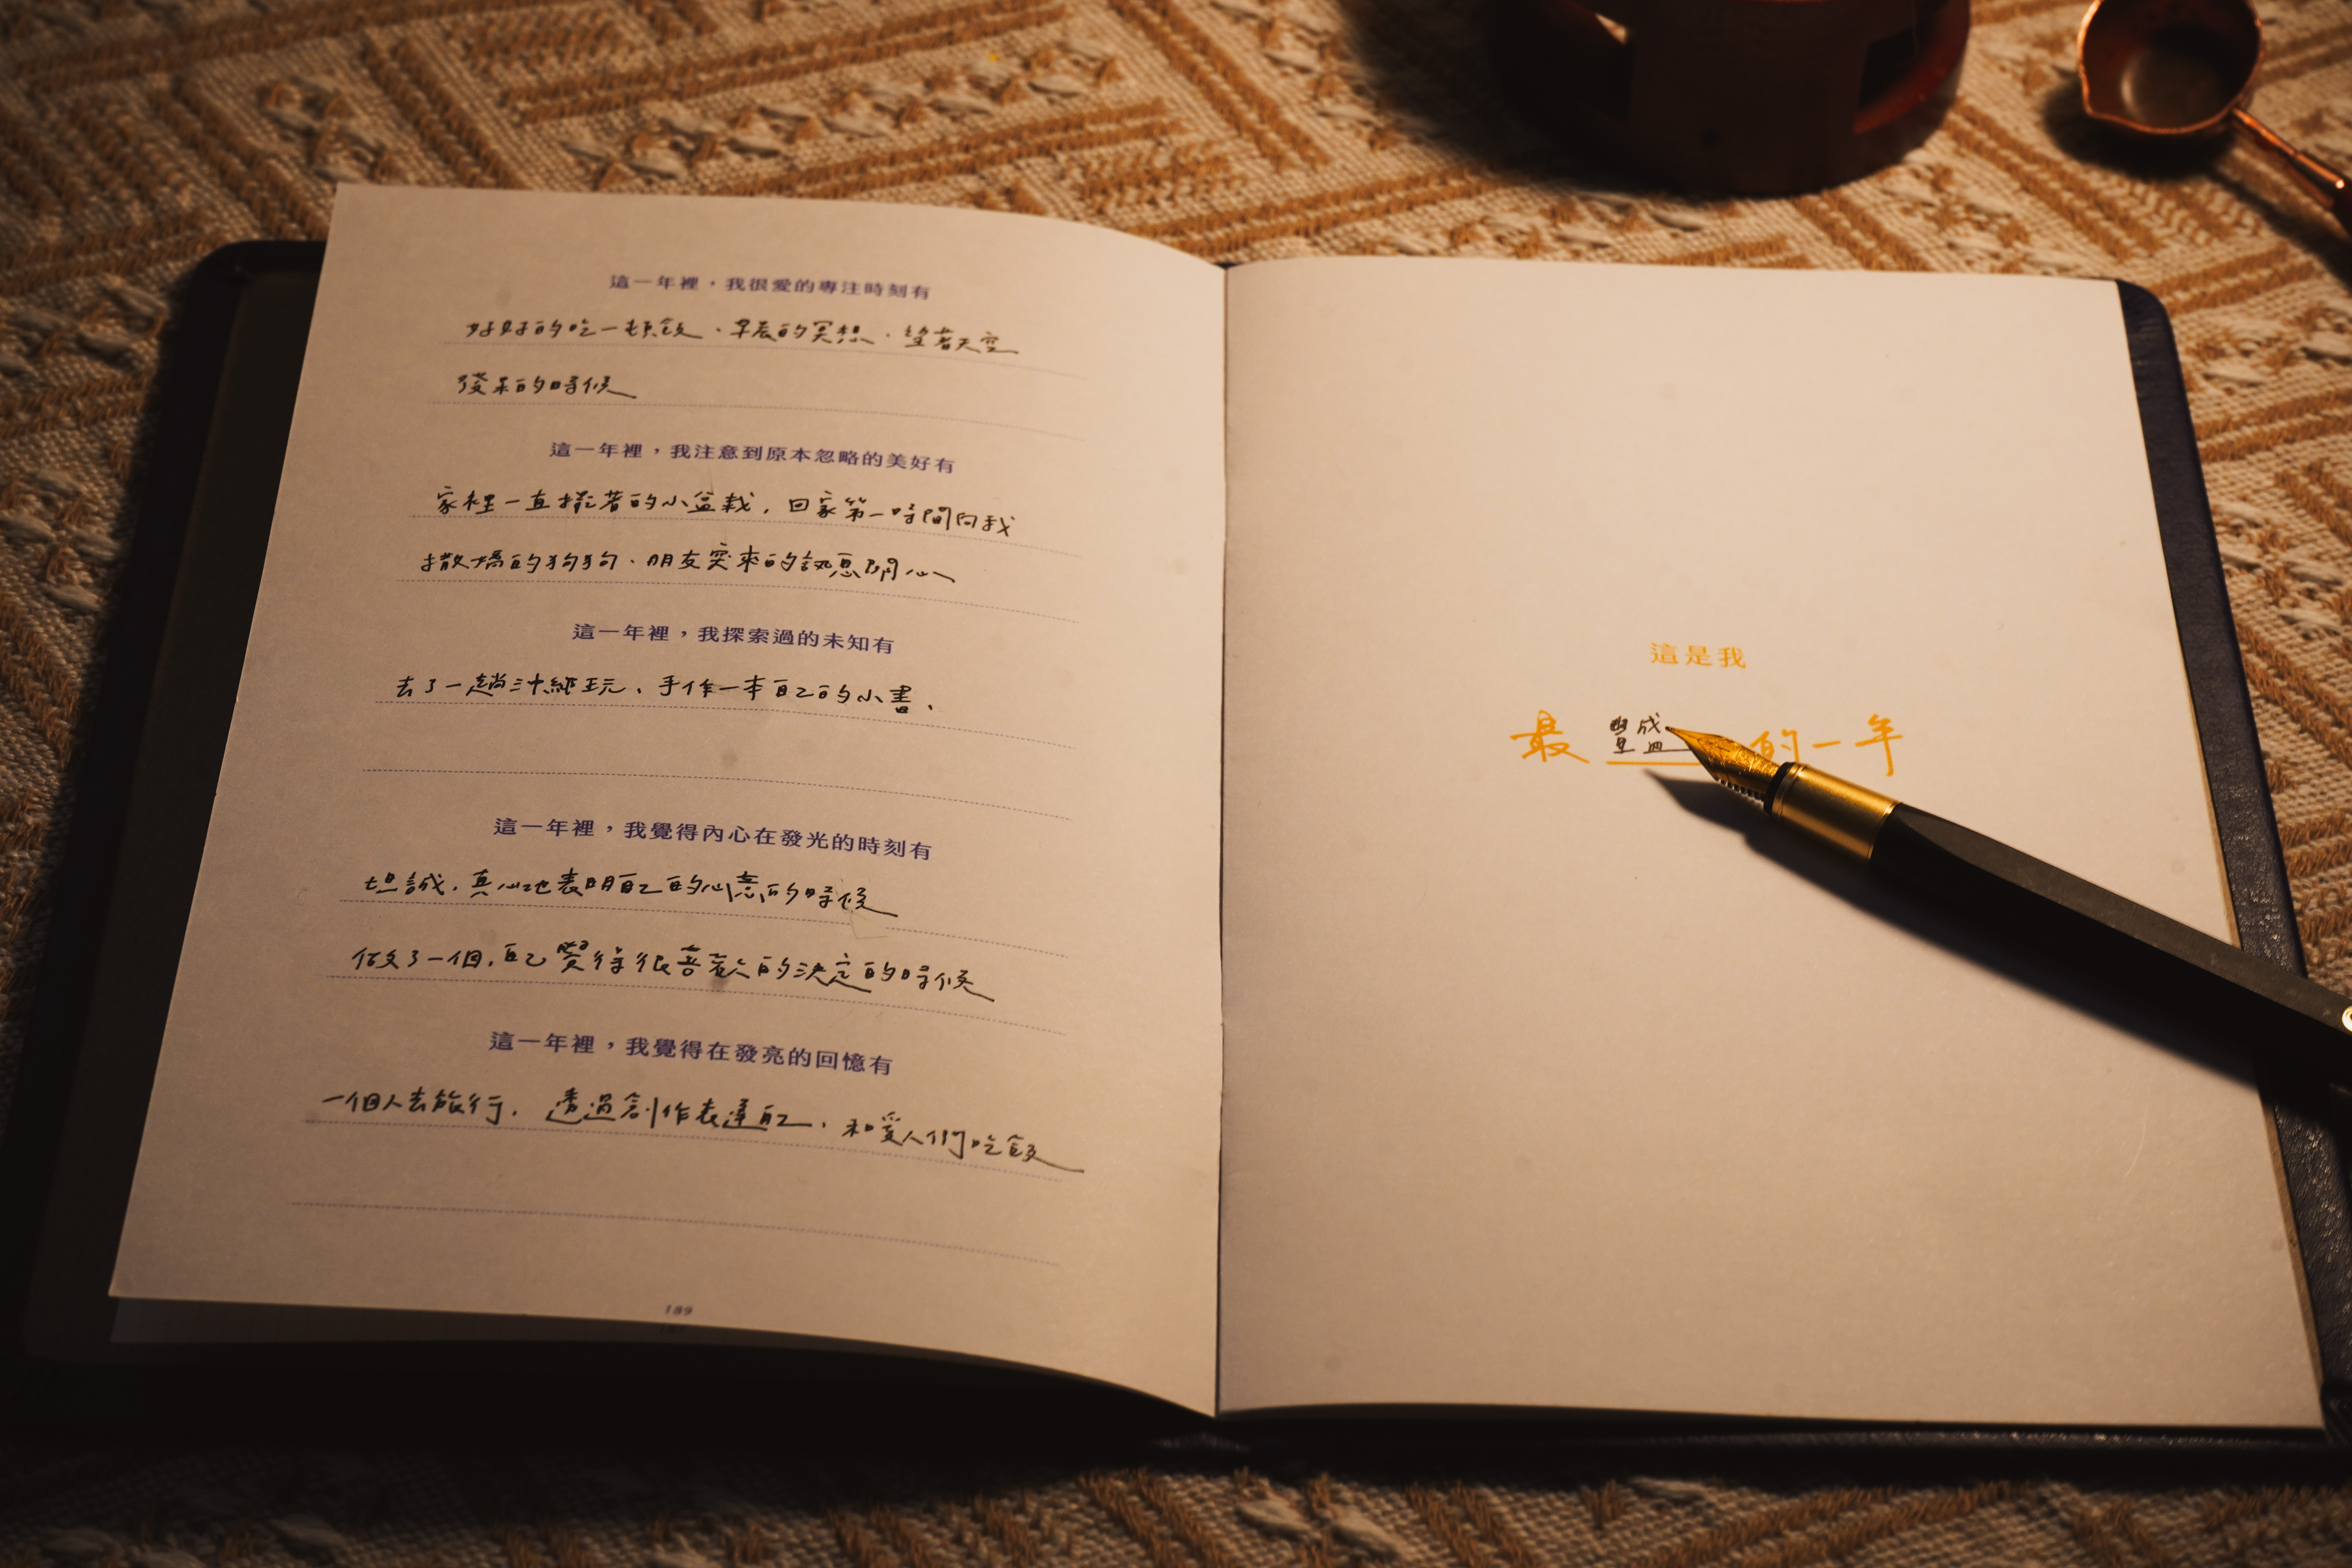 這一年裡，我很愛的專注時刻有
好好的吃一頓飯、早晨的冥想、望著天空
發呆的時候
這一年裡，我注意到原本忽略的美好有
家裡一直擺著的小盆栽，回家第一時間向我
撒嬌的狗狗、朋友突來的訊息關心
這一年裡，我探索過的未知有
去了一趟沖繩玩、手作一本自己的小書、
這一年裡，我覺得內心在發光的時刻有
坦誠，真心地表明自己的心意的時候
做了一個，自己覺得很喜歡的決定的時候
這一年裡，我覺得在發亮的回憶有
一個人去旅行，透過創作表達自己、和愛人們吃飯
189
這是我
最豐盛的一年